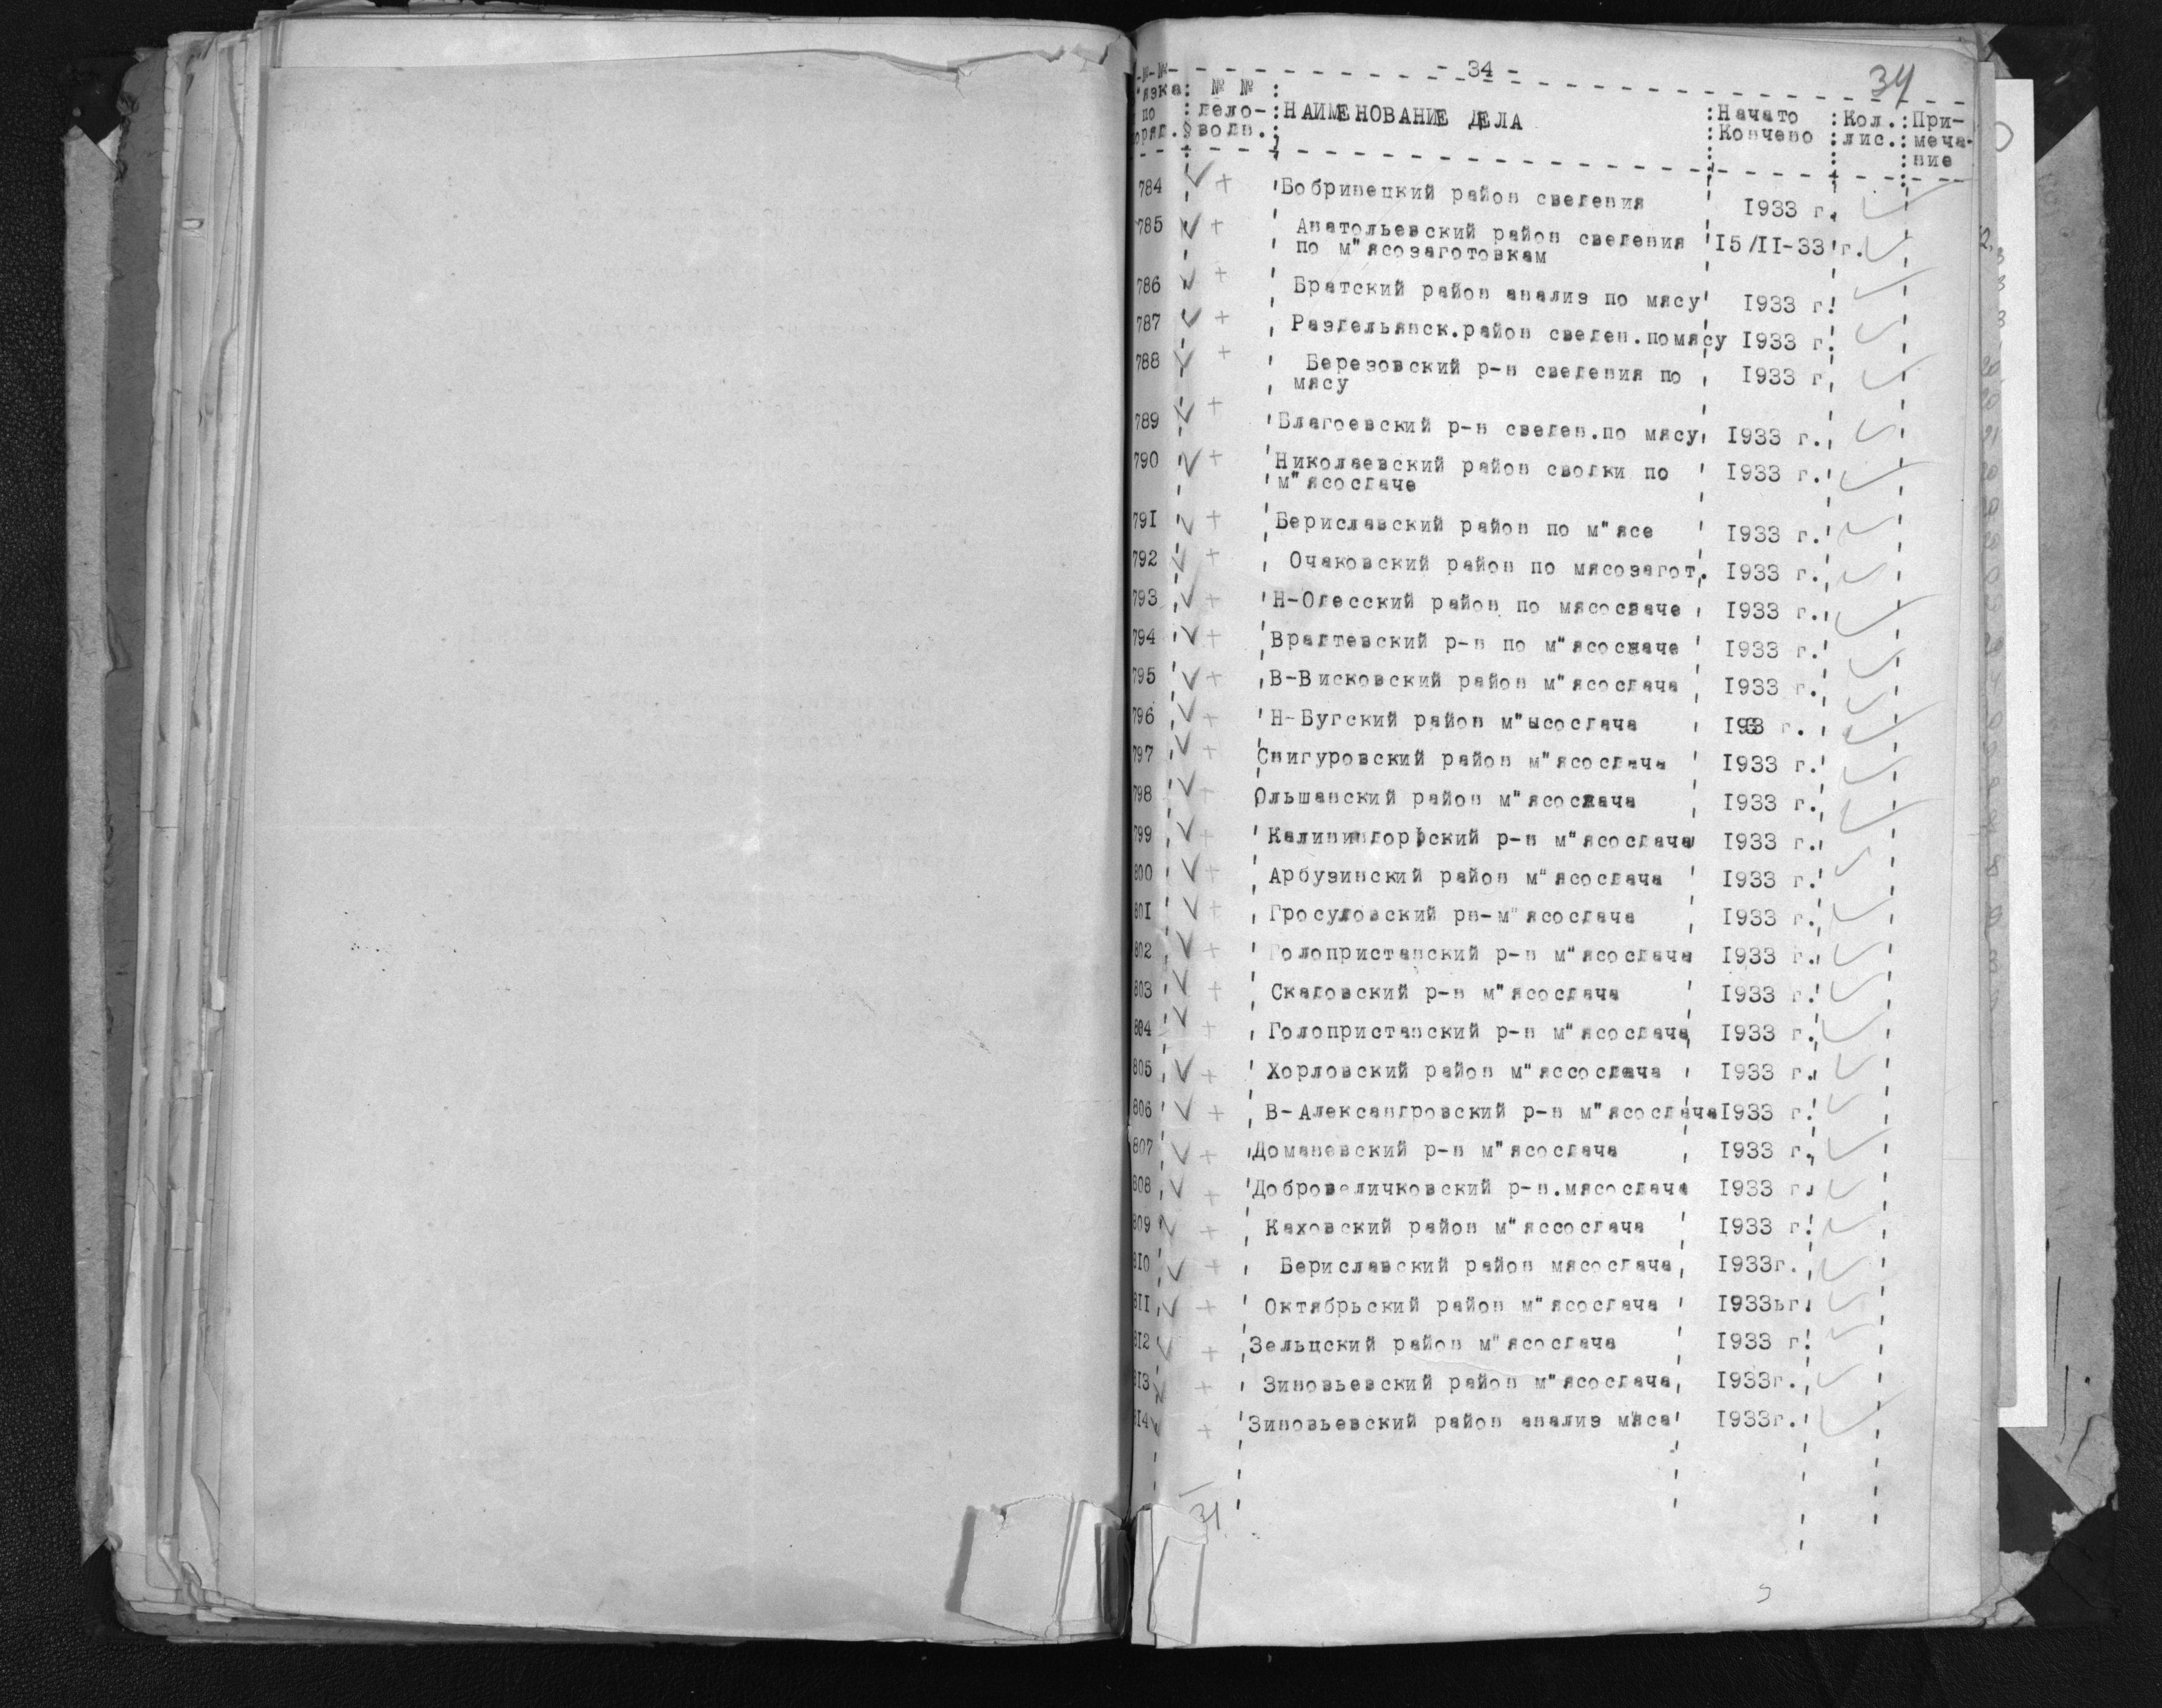 - 34 -
34
№ №
язка: № №
по : дело- :НАИМЕНОВАНИЕ ДЕЛА :Начато :Кол.:При-
оряд. водн. :Кончено :лис.:меча-
ние
784 Бобринецкий район сведения 1933 г.
785 Анатольевский район сведения 15/II-33 г.
по м"ясозаготовкам
786 Братский район анализ по мясу 1933 г.
787 Раздельянск.район сведен.помясу 1933 г.
788 Березовский р-н сведения по 1933 г.
мясу
789 Благоевский р-н сведен.по мясу 1933 г.
790 Николаевский район сводки по 1933 г.
м"ясосдаче
791 Бериславский район по м"ясе 1933 г.
792 Очаковский район по мясозагот. 1933 г.
793 Н-Одесский район по мясосдаче 1933 г.
794 Врадтевский р-н по м"ясосдаче 1933 г.
795 В-Висковский район м"ясосдача 1933 г.
796 Н-Бугский район м"ысосдача 1933 г.
797 Снигуровский район м"ясосдача 1933 г.
798 Ольшанский район м"ясосдача 1933 г.
799 Калининдорфский р-н м"ясосдача 1933 г.
800 Арбузинский район м"ясосдача 1933 г.
801 Гросуловский рн-м"ясосдача 1933 г.
802 Голопристанский р-н м"ясосдача 1933 г.
803 Скадовский р-н м"ясосдача 1933 г.
804 Голопристанский р-н м"ясосдача 1933 г.
805 Хорловский район м"яссосдача 1933 г.
806 В-Александровский р-н м"ясосдача1933 г.
807 Доманевский р-н м"ясосдача 1933 г.
808 Добровеличковский р-н.мясосдача 1933 г.
809 Каховский район м"яссосдача 1933 г.
810 Бериславский район мясосдача 1933г.
811 Октябрьский район м"ясосдача 1933ьг.
812 Зельцский район м"ясосдача 1933 г.
813 Зиновьевский район м"ясосдача 1933г.
814 Зиновьевский район анализ мяса 1933г.
31